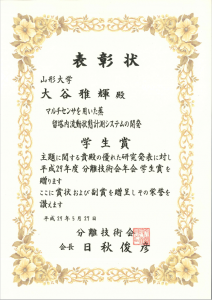 表彰状
山形大学
大谷雅輝 殿
マルチセンサを用いた蒸
留塔内流動状態計測システムの開発
学生賞
主題に関する貴殿の優れた研究発表に対し
平成29年度 分離技術会年会 学生賞を
贈ります
ここに賞状および副賞を贈呈しその栄誉を
讃えます
平成29年5月27日
分離技術会
会長 日秋俊彦